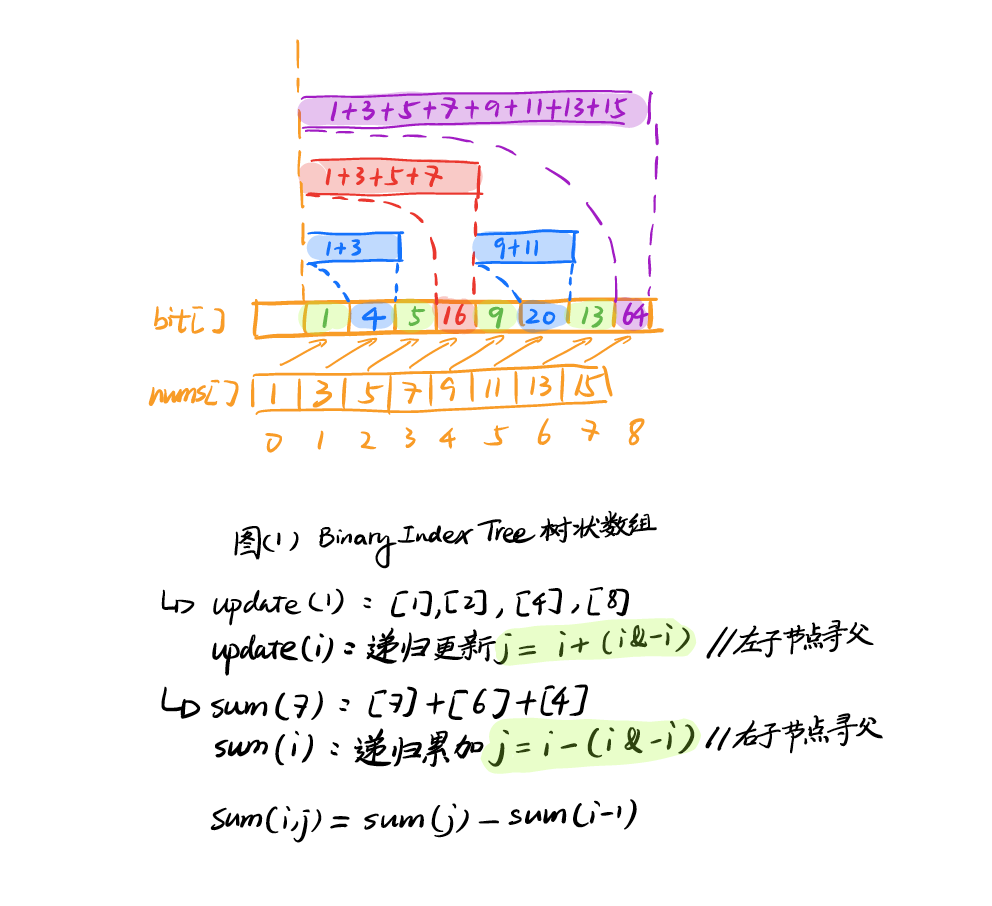 1+3+5+7+9+11+13+15
1+3+5+7
1+3 9+11
bit[] 1 4 5 16 9 20 13 64
nums[] 1 3 5 7 9 11 13 15
0 1 2 3 4 5 6 7 8
图(1) Binary Index Tree 树状数组
↳ update(1) : [1],[2],[4],[8]
update(i) : 递归更新 j = i+(i&-i) //左子节点寻父
↳ sum(7) : [7]+[6]+[4]
sum(i) : 递归累加 j = i-(i&-i) //右子节点寻父
sum(i,j) = sum(j) - sum(i-1)